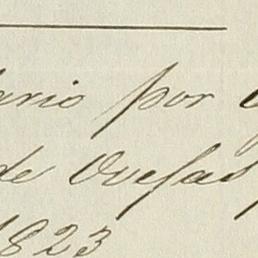 ario por
de Ovejas
1823